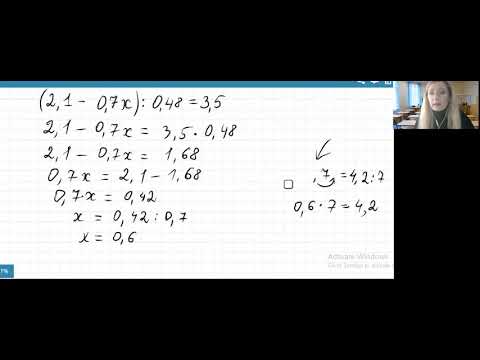 (2,1 - 0,7x) : 0,48 = 3,5
2,1 - 0,7x = 3,5 · 0,48
2,1 - 0,7x = 1,68
0,7x = 2,1 - 1,68
0,7·x = 0,42
x = 0,42 : 0,7
x = 0,6
,7 = 4,2 : 7
0,6 · 7 = 4,2
Activate Windows